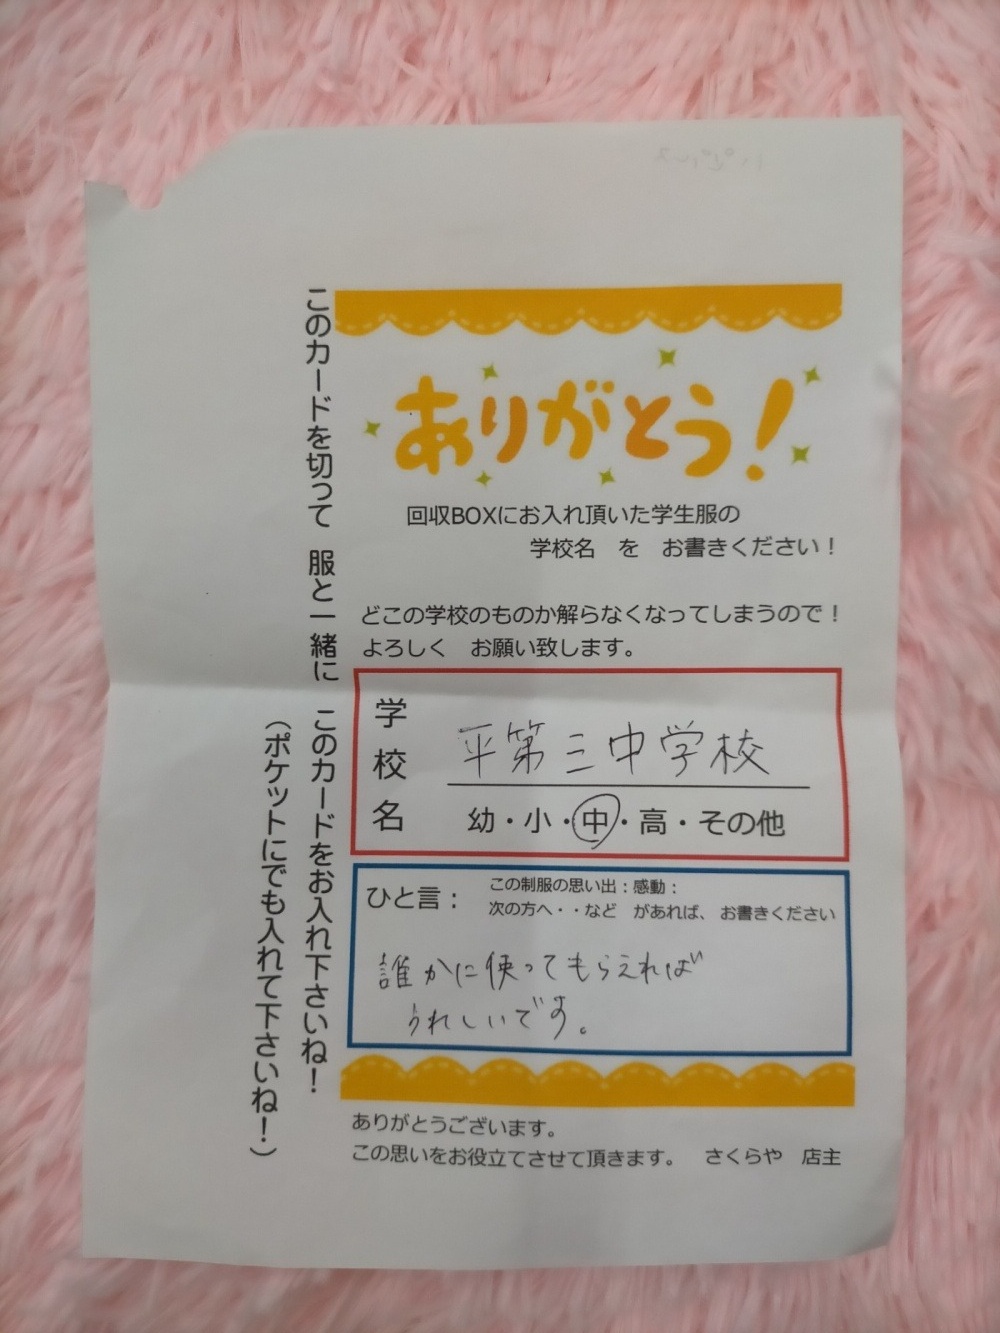 ありがとう！
回収BOXにお入れ頂いた学生服の
学校名 を お書きください！
どこの学校のものか解らなくなってしまうので！
よろしく お願い致します。
学校名
平第三中学校
幼・小・中・高・その他
ひと言：
この制服の思い出：感動：
次の方へ・・など があれば、お書きください
誰かに使ってもらえれば
うれしいです。
ありがとうございます。
この思いをお役立てさせて頂きます。 さくらや 店主
このカードを切って 服と一緒に このカードをお入れ下さいね！
（ポケットにでも入れて下さいね！）